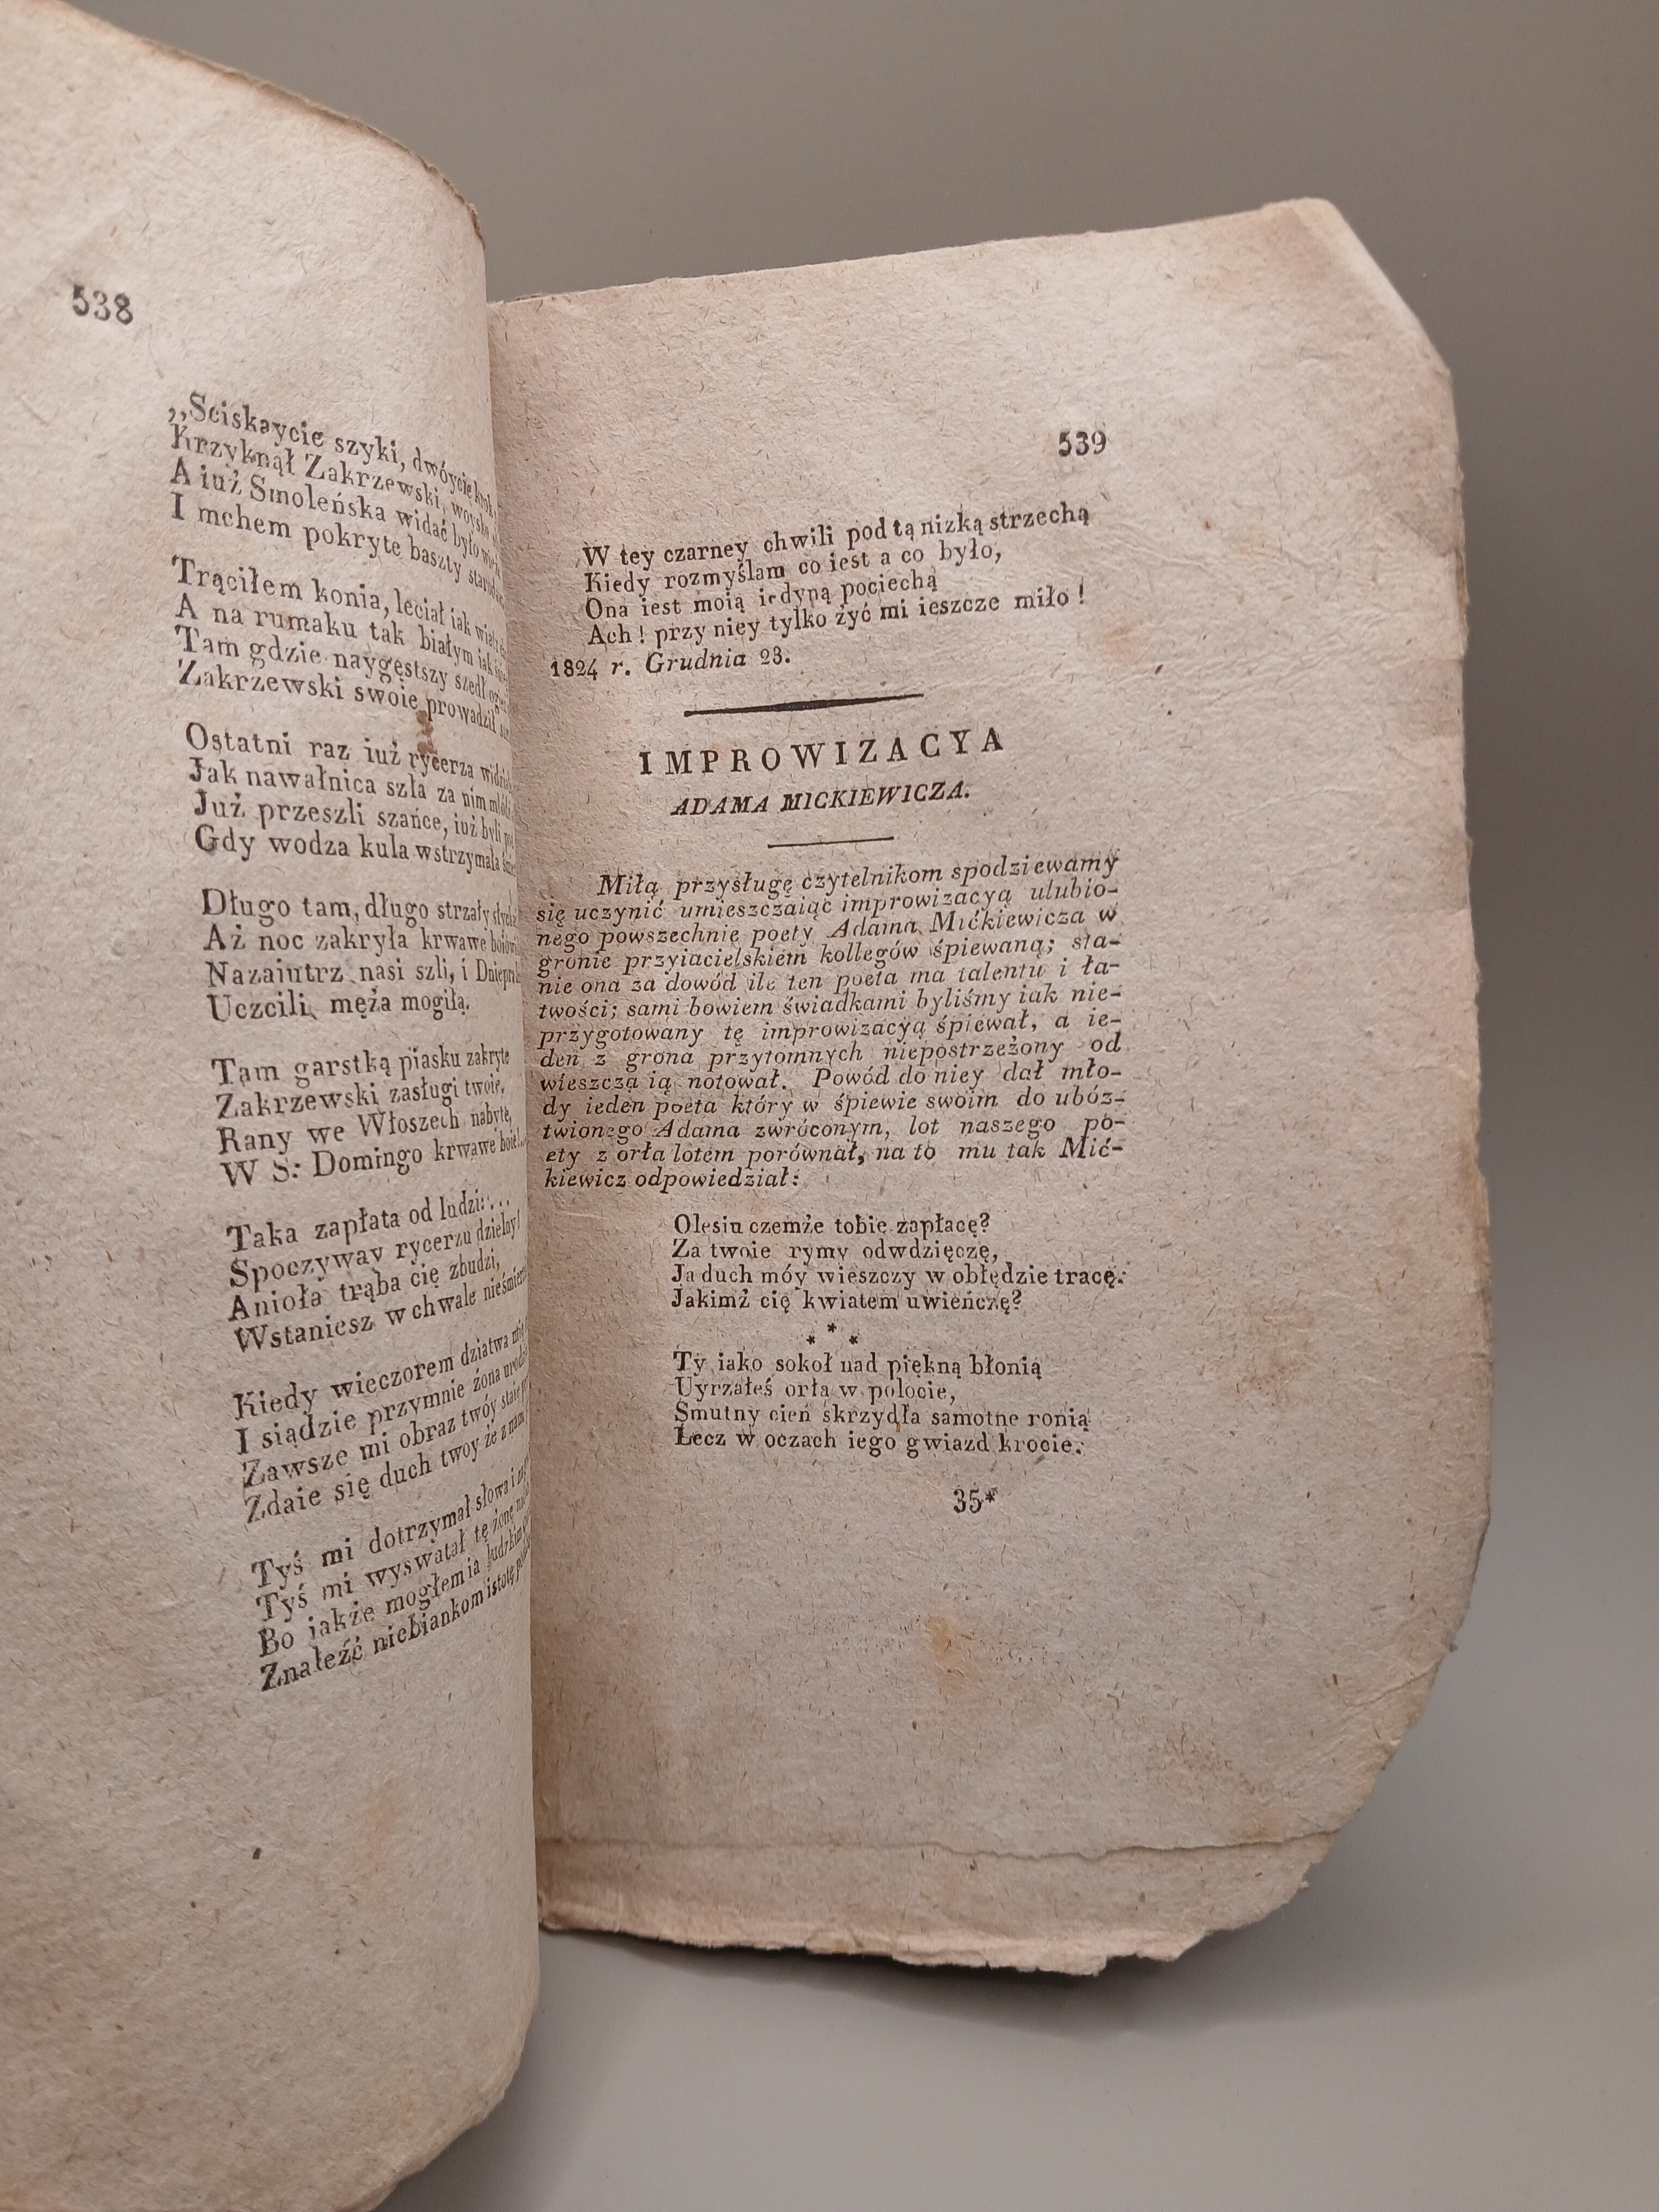 538
„Sciskaycie szyki, dwóycię krok,
Krzyknął Zakrzewski, woysko
A iuż Smoleńska widać było
I mchem pokryte baszty
Trąciłem konia, leciał iak
A na rumaku tak białym iak
Tam gdzie naygęstszy szedł
Zakrzewski swoie prowadził
Ostatni raz iuż rycerza
Jak nawałnica szła za nim
Już przeszli szańce, iuż byli
Gdy wodza kula wstrzymała
Długo tam, długo strzały
Aż noc zakryła krwawe
Nazaiutrz nasi szli, i
Uczcili męża mogiłą.
Tam garstką piasku zakryte
Zakrzewski zasługi twoie,
Rany we Włoszech nabyte,
W S: Domingo krwawe
Taka zapłata od ludzi:...
Spoczyway rycerzu dzielny!
Anioła trąba cię zbudzi,
Wstaniesz w chwale
Kiedy wieczorem dziatwa
I siądzie przymnie żona
Zawsze mi obraz twóy staie
Zdaie się duch twoy że znam
Tyś mi dotrzymał słowa i
Tyś mi wyswatał tę żonę
Bo iakże mogłem ia ludzkim
Znaleźć niebiankom istotę
539
W tey czarney chwili pod tą nizką strzechą
Kiedy rozmyślam co iest a co było,
Ona iest moią iedyną pociechą
Ach! przy niey tylko żyć mi ieszcze miło!
1824 r. Grudnia 23.
IMPROWIZACYA
ADAMA MICKIEWICZA.
Miłą przysługę czytelnikom spodziewamy
się uczynić umieszczaiąc improwizacyą ulubio-
nego powszechnie poety Adama Mićkiewicza w
gronie przyiacielskiem kollegów śpiewaną; sta-
nie ona za dowód ile ten poeta ma talentu i ła-
twości; sami bowiem świadkami byliśmy iak nie-
przygotowany tę improwizacyą śpiewał, a ie-
den z grona przytomnych niepostrzeżony od
wieszcza ią notował. Powód do niey dał mło-
dy ieden poeta który w śpiewie swoim do ubóz-
twionego Adama zwróconym, lot naszego po-
ety z orła lotem porównał, na to mu tak Mić-
kiewicz odpowiedział:
Olesiu czemże tobie zapłacę?
Za twoie rymy odwdzięczę,
Ja duch móy wieszczy w obłędzie tracę.
Jakimż cię kwiatem uwieńczę?
* * *
Ty iako sokoł nad piękną błonią
Uyrzałeś orła w polocie,
Smutny cień skrzydła samotne ronią
Lecz w oczach iego gwiazd krocie.
35*